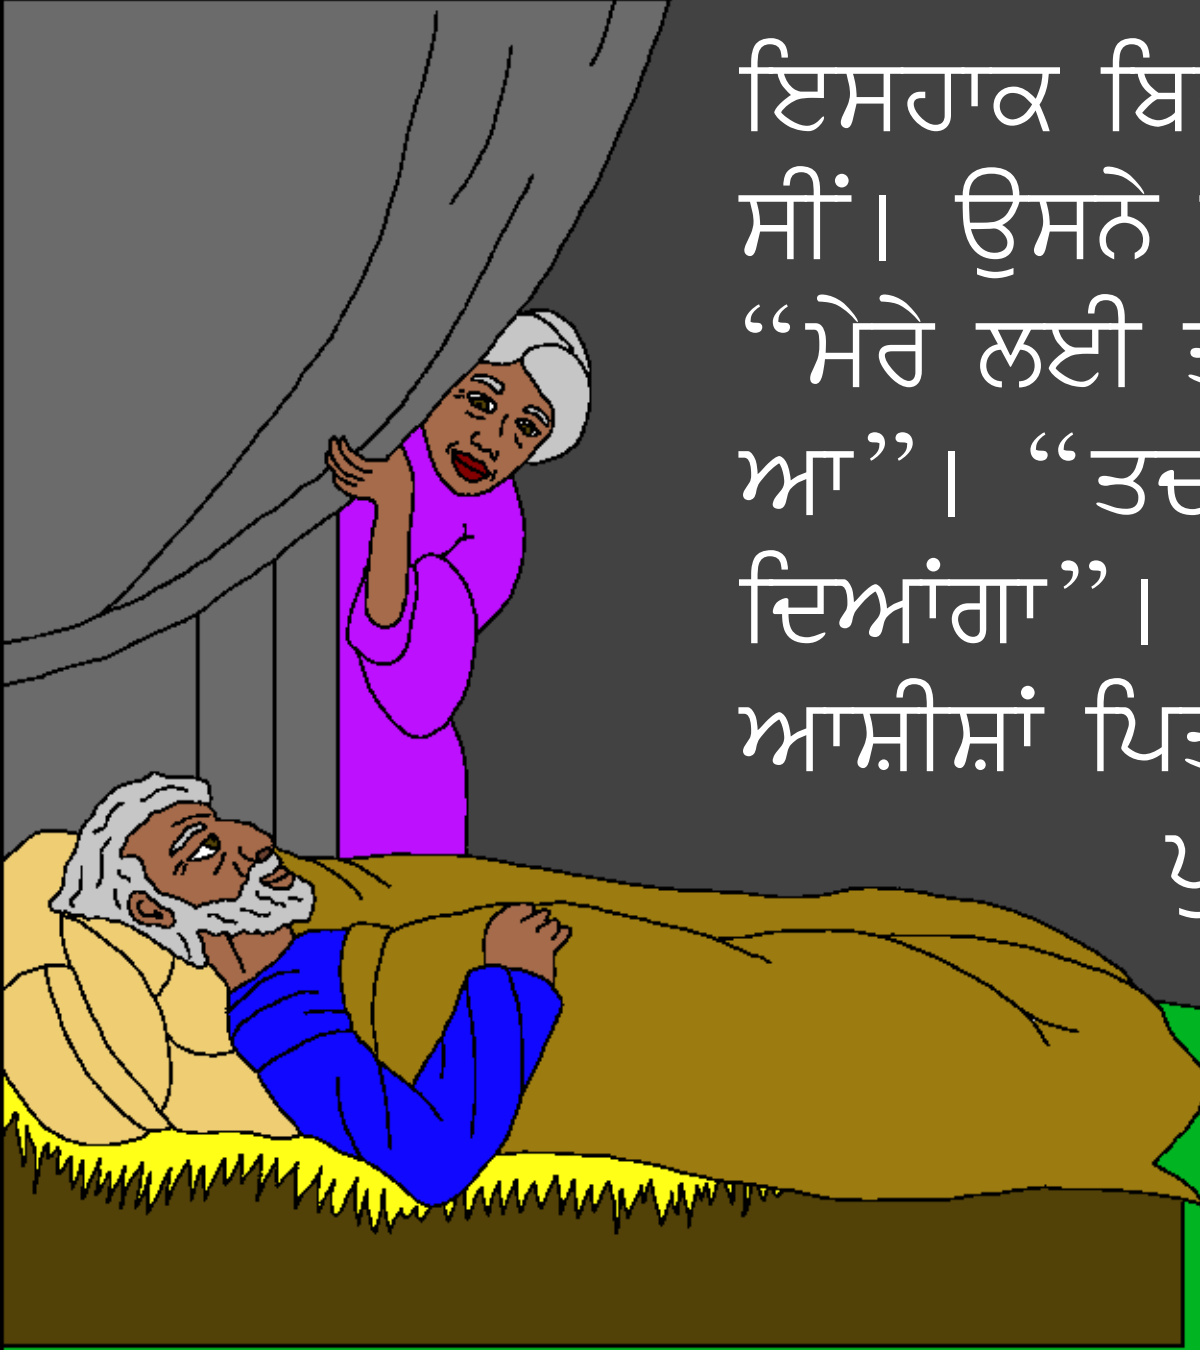 ਇਸਹਾਕ
ਸੀਂ। ਉਸਨੇ
“ਮੇਰੇ ਲਈ
ਆ”। “ਤਦ
ਦਿਆਂਗਾ”।
ਆਸ਼ੀਸ਼ਾਂ